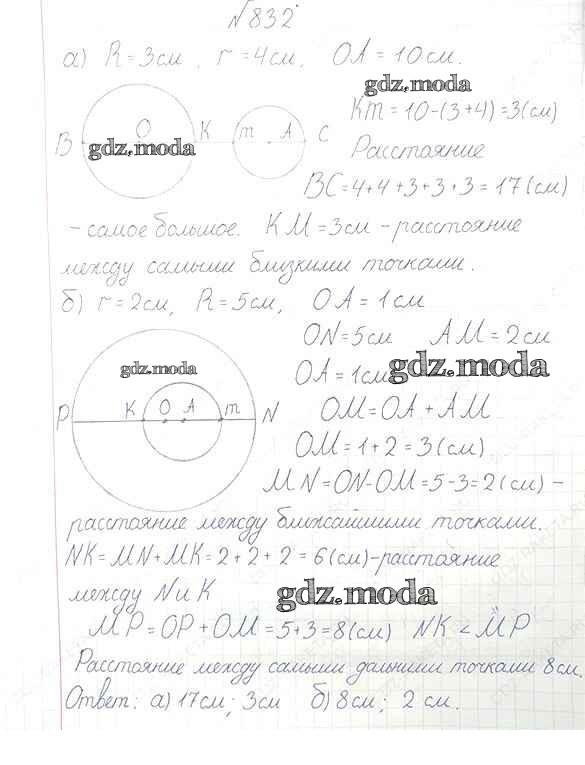 №832
а) R = 3см, r = 4см, OA = 10см.
gdz.moda
Km = 10-(3+4) = 3(см)
B O K m A C
gdz.moda
Расстояние
BC = 4+4+3+3+3 = 17(см)
- самое большое. KM = 3см - расстояние
между самыми близкими точками.
б) r = 2см, R = 5см, OA = 1см
ON = 5см AM = 2см
gdz.moda
OA = 1см
gdz.moda
P K O A m N
OM = OA + AM
OM = 1+2 = 3(см)
MN = ON-OM = 5-3 = 2(см) -
расстояние между ближайшими точками.
NK = MN + MK = 2+2+2 = 6(см) - расстояние
между N и K
gdz.moda
MP = OP + OM = 5+3 = 8(см) NK < MP
Расстояние между самыми дальними точками 8см.
Ответ: а) 17см; 3см б) 8см; 2см.